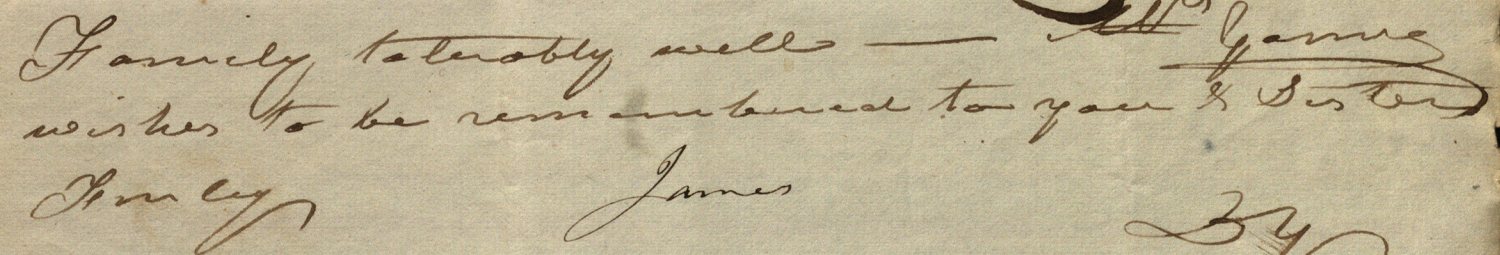 Family tolerably well — Mrs
wishes to be remembered to you & Sister
Finley James